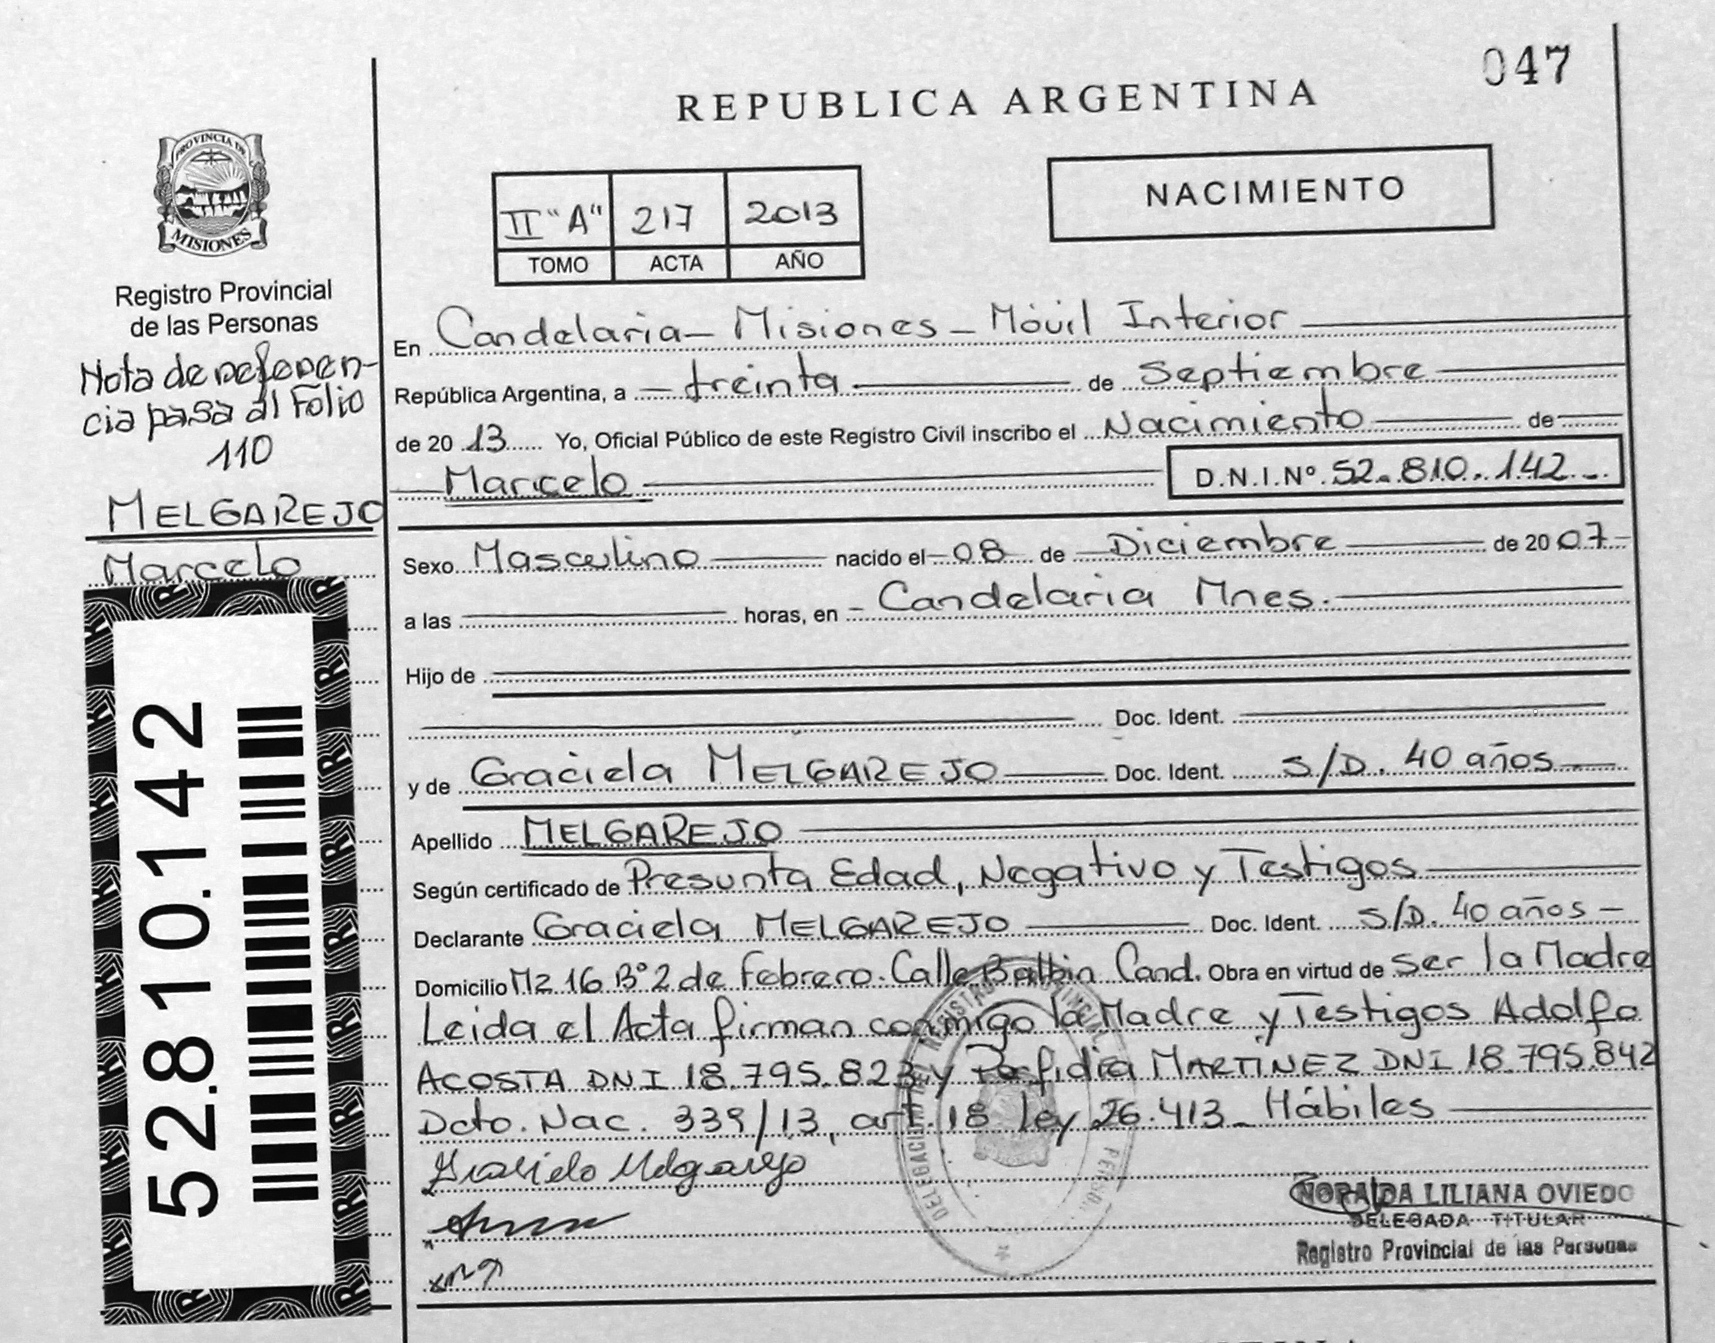 047
REPUBLICA ARGENTINA
PROVINCIA DE
MISIONES
Registro Provincial
de las Personas
Nota de referen-
cia pasa al Folio
110
MELGAREJO
Marcelo
52.810.142
II "A" 217 2013
TOMO ACTA AÑO
NACIMIENTO
En Candelaria - Misiones - Móvil Interior
República Argentina, a treinta de Septiembre
de 20 13 Yo, Oficial Público de este Registro Civil inscribo el Nacimiento de
Marcelo D.N.I.Nº 52.810.142
Sexo Masculino nacido el 08 de Diciembre de 20 07
a las horas, en Candelaria Mnes.
Hijo de
Doc. Ident.
y de Graciela MELGAREJO Doc. Ident. S/D. 40 años
Apellido MELGAREJO
Según certificado de Presunta Edad, Negativo y Testigos
Declarante Graciela MELGAREJO Doc. Ident. S/D. 40 años
Domicilio Mz 16 Bº 2 de Febrero. Calle Balbin Cand. Obra en virtud de ser la Madre
Leida el Acta firman conmigo la Madre y Testigos Adolfo
ACOSTA DNI 18.795.823 y Porfidia MARTÍNEZ DNI 18.795.842
Dcto. Nac. 339/13, art. 18 ley 26.413_ Hábiles
Graciela Melgarejo
NORAIDA LILIANA OVIEDO
DELEGADA TITULAR
Registro Provincial de las Personas